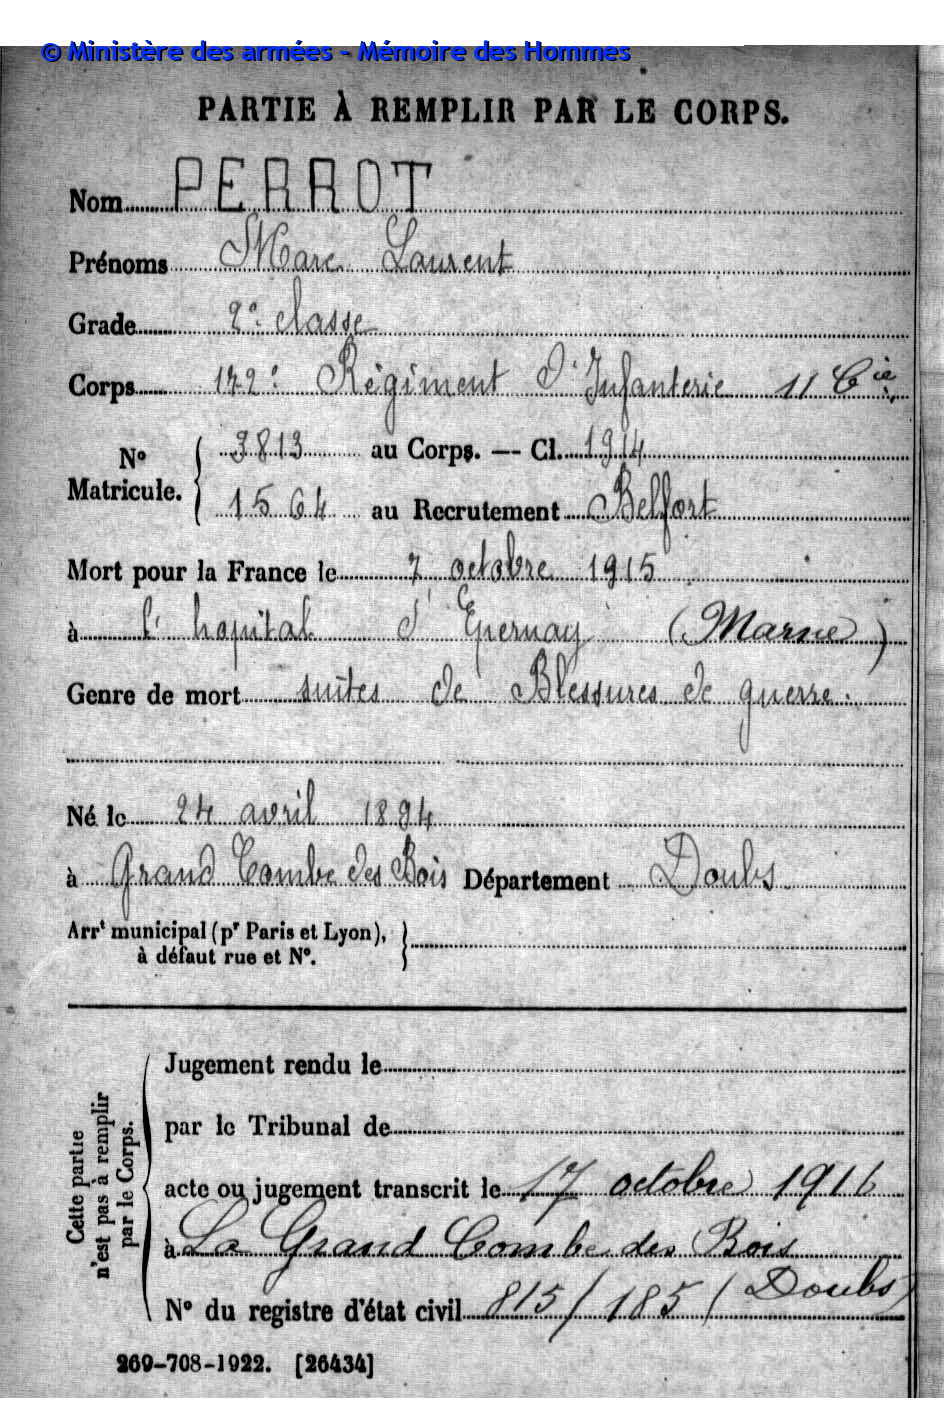 © Ministère des armées - Mémoire des Hommes
PARTIE À REMPLIR PAR LE CORPS.
Nom PERROT
Prénoms Marc Laurent
Grade 2e classe
Corps 172e Régiment d'Infanterie 11 Cie,
N° Matricule. { 3813 au Corps. — Cl. 1914
1564 au Recrutement Belfort
Mort pour la France le 7 octobre 1915
à l'hopital d'Epernay (Marne)
Genre de mort suites de Blessures de guerre.
Né le 24 avril 1894
à Grand Combe des Bois Département Doubs
Arrt municipal (pr Paris et Lyon),
à défaut rue et N°.
Cette partie
n'est pas à remplir
par le Corps.
Jugement rendu le
par le Tribunal de
acte ou jugement transcrit le 17 octobre 1916
à La Grand Combe des Bois
N° du registre d'état civil 815/185 (Doubs)
269-708-1922. [26434]